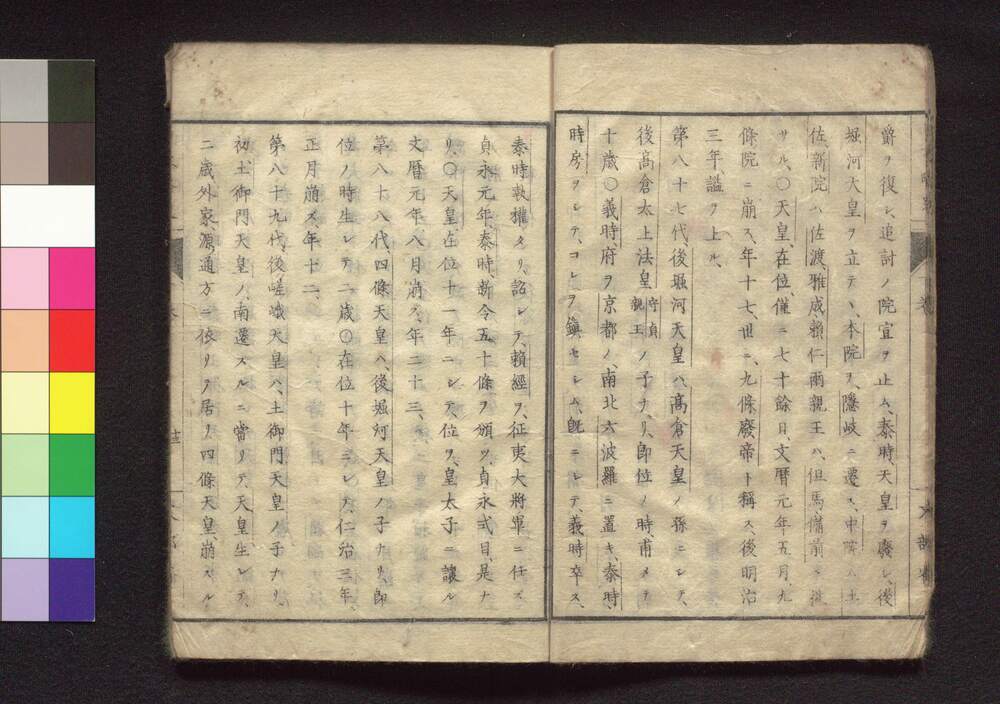 爵ヲ復シ、追討ノ院宣ヲ止ム、泰時、天皇ヲ廢シ、後
堀河天皇ヲ立テ、本院ヲ、隱岐ニ遷ス、中院ハ土
佐、新院ハ佐渡雅成、賴仁兩親王ハ、但馬、備前ニ
サル、〇天皇、在位僅ニ七十餘日、文曆元年五月、九
條院ニ崩ス、年十七、世ニ、九條廢帝ト稱ス後明治
三年、諡ヲ上ル、
第八十七代、後堀河天皇ハ、高倉天皇ノ孫ニシテ、
後高倉太上法皇守貞親王ノ子ナリ、卽位ノ時甫メテ
十歲〇義時府ヲ京都ノ、南北六波羅ニ置キ、泰時
時房ヲシテ、コレヲ鎭セシム、旣ニシテ、義時卒ス、
泰時執權タリ、詔シテ、賴經ヲ、征夷大將軍ニ任ス、
貞永元年、泰時、新令五十條ヲ頒ツ、貞永式目、是ナ
リ、〇天皇在位十一年ニシテ、位ヲ、皇太子ニ讓ル
文曆元年、八月崩ス、年二十三、
第八十八代四條天皇ハ、後堀河天皇ノ子ナリ、卽
位ノ時生レテ二歲〇在位十年ニシテ、仁治三年、
正月崩ス年十二、
第八十九代、後嵯峨天皇ハ、土御門天皇ノ子ナリ、
初土御門天皇ノ、南遷スルニ當リテ、天皇生レテ、
二歲外家、源通方ニ依リテ居リ、四條天皇、崩スル